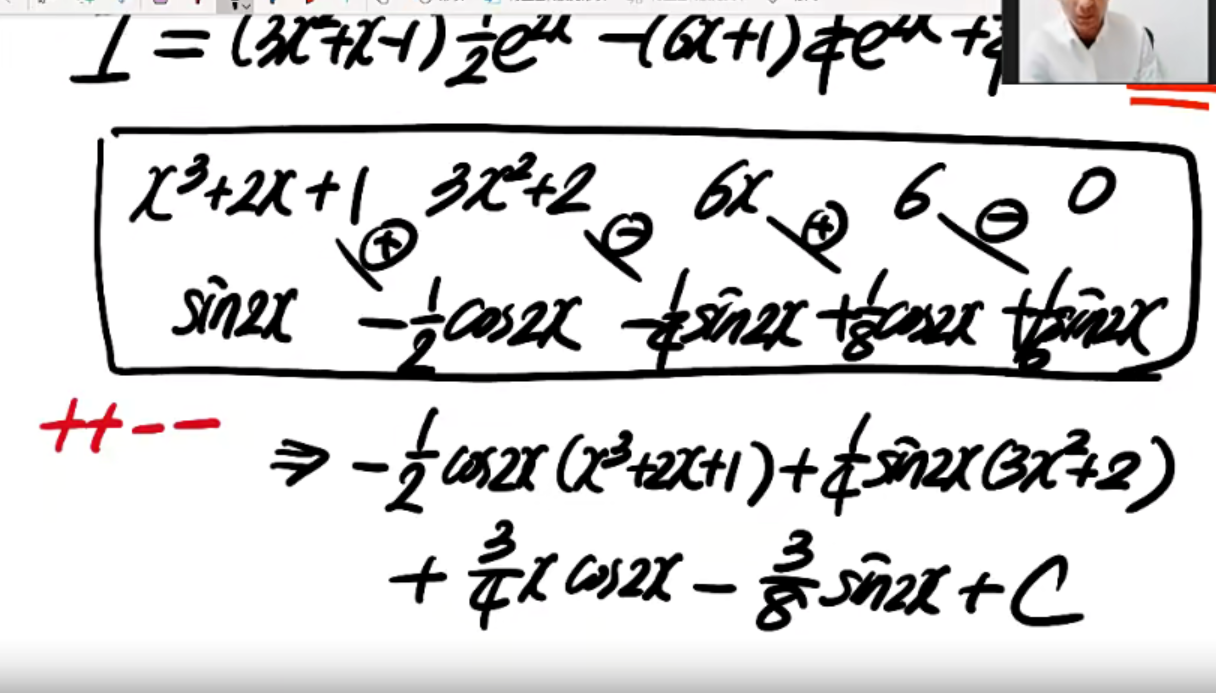 I = (3x²+x-1) 1/2 e^2x - (6x+1) 1/4 e^2x +
x³+2x+1 3x²+2 6x 6 0
⊕ ⊖ ⊕ ⊖
sin2x -1/2 cos2x -1/4 sin2x +1/8 cos2x +1/16 sin2x
++--
⇒ -1/2 cos2x (x³+2x+1) + 1/4 sin2x (3x²+2)
+ 3/4 x cos2x - 3/8 sin2x + C